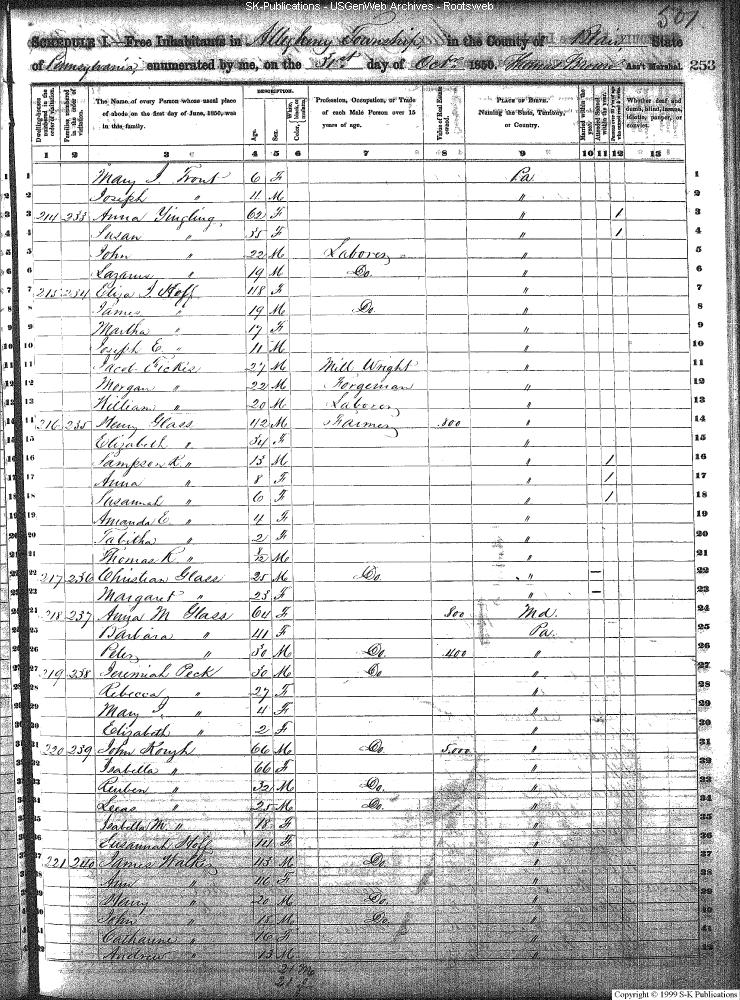 SK-Publications - USGenWeb Archives - Rootsweb
507
SCHEDULE I.—Free Inhabitants in Allegheny Township in the County of Blair State
of Pennsylvania enumerated by me, on the 31st day of Octr 1850. Ass't Marshal. 253
Dwelling-houses numbered in the order of visitation.
Families numbered in the order of visitation.
The Name of every Person whose usual place of abode on the first day of June, 1850, was in this family.
DESCRIPTION.
Age.
Sex.
White, black, or mulatto.
Color,
Profession, Occupation, or Trade of each Male Person over 15 years of age.
Value of Real Estate owned.
PLACE OF BIRTH. Naming the State, Territory, or Country.
Married within the year.
Attended School within the year.
Whether deaf and dumb, blind, insane, idiotic, pauper, or convict.
1 2 3 4 5 6 7 8 9 10 11 12 13
1 Mary J. Trout 6 F Pa 1
2 Joseph " 11 M " 2
3 214 233 Anna Yingling 62 F " / 3
4 Susan " 35 F " / 4
5 John " 22 M Laborer " 5
6 Lazarus " 19 M Do. " 6
7 215 234 Eliza J. Hoff 48 F " 7
8 James " 19 M Do. " 8
9 Martha " 17 F " 9
10 Joseph E. " 11 M " 10
11 Jacob Fickes 27 M Mill Wright " 11
12 Morgan " 22 M Forgeman " 12
13 William " 20 M Laborer " 13
14 216 235 Henry Glass 42 M Farmer 800 " 14
15 Elizabeth " 34 F " 15
16 Sampson K. " 13 M " / 16
17 Anna " 8 F " / 17
18 Susannah " 6 F " / 18
19 Amanda E. " 4 F " 19
20 Tabitha " 2 F " 20
21 Thomas R. " M " 21
22 217 236 Christian Glass 25 M Do. " — 22
23 Margaret " 23 F " — 23
24 218 237 Anna M Glass 64 F 800 Md. 24
25 Barbara " 41 F Pa. 25
26 Peter " 30 M Do. 400 " 26
27 219 238 Jeremiah Peck 30 M Do " 27
28 Rebecca " 27 F " 28
29 Mary J. " 4 F " 29
30 Elizabeth " 2 F " 30
31 220 239 John Rough 66 M Do. 5,000 " 31
32 Isabella " 66 F " 32
33 Reuben " 32 M Do. " 33
34 " 25 M Do. " 34
35 Isabella M. " 18 F " 35
36 Susannah Hoff F " 36
37 221 240 James Walker 43 M Do. " 37
38 Ann " 46 F " 38
39 Henry " 20 M Do. " 39
40 John " 18 M Do. " 40
41 Catharine " 16 F " 41
42 Andrew " 13 M " 42
21 M
21 F
Copyright © 1999 S-K Publications